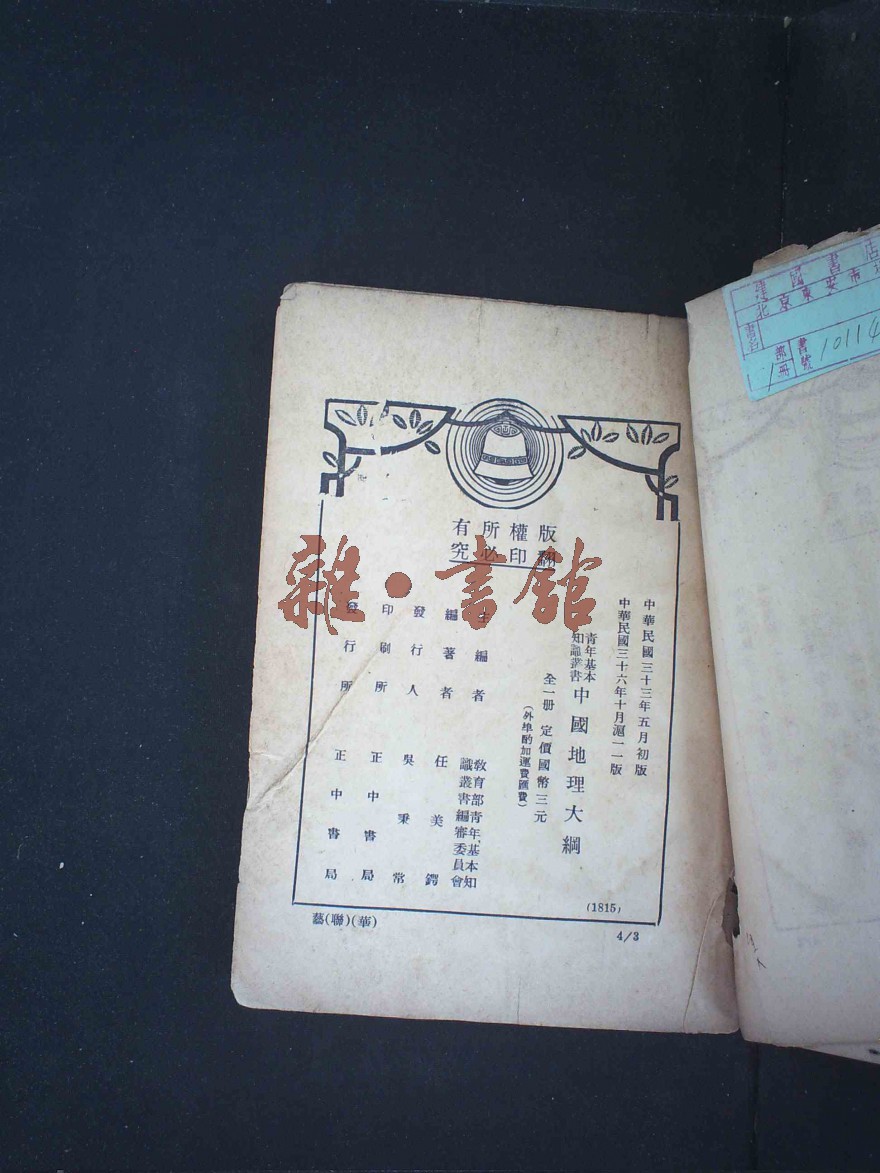 版權所有
翻印必究
中華民國三十三年五月初版
中華民國三十六年十月滬一一版
青年基本
知識叢書
中國地理大綱
全一冊 定價國幣三元
(外埠酌加運費匯費)
主編者 教育部青年基本知
識叢書編審委員會
編著者 任美鍔
發行人 吳秉常
印刷所 正中書局
發行所 正中書局
(1815)
藝(聯)(華)
4/3
雜·書館
建國書店
北京東安市場
書名
部冊
1
書號
10114